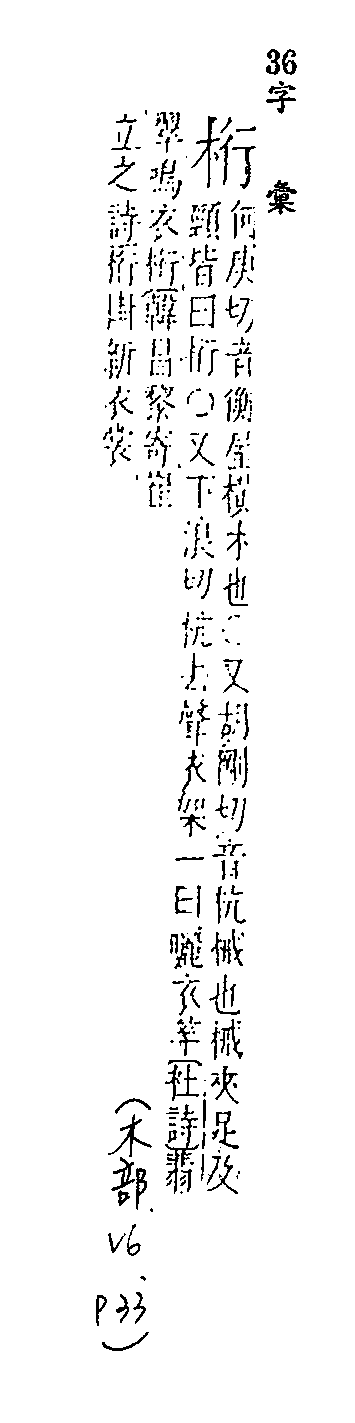 36
字 彙
桁
何庚切音衡屋橫木也○又胡剛切音杭械也械夾足及
頸皆曰桁○又下浪切杭去聲衣架一曰曬衣竿杜詩翡
翠鳴衣桁韓昌黎寄崔
立之詩桁掛新衣裳
(木部
V6
P33)